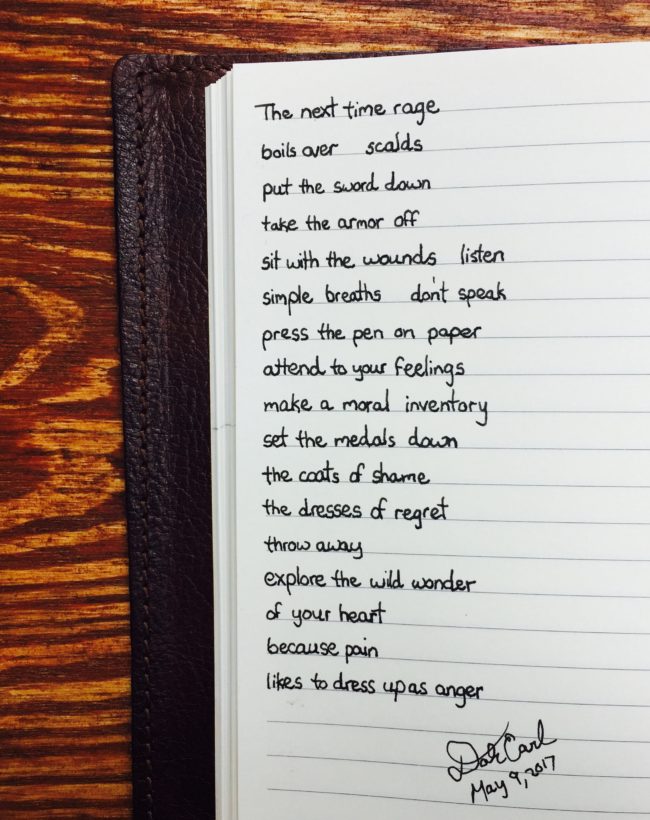 The next time rage
boils over scalds
put the sword down
take the armor off
sit with the wounds listen
simple breaths don't speak
press the pen on paper
attend to your feelings
make a moral inventory
set the medals down
the coats of shame
the dresses of regret
throw away
explore the wild wonder
of your heart
because pain
likes to dress up as anger
May 9, 2017